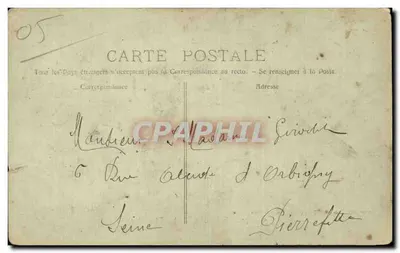 05
CARTE POSTALE
Tous les Pays étrangers n'acceptent pas la Correspondance au recto. - Se renseigner à la Poste
Correspondance Adresse
CPARAMA
Monsieur & Madame
6 Rue d'Orbigny
Seine Pierrefitte